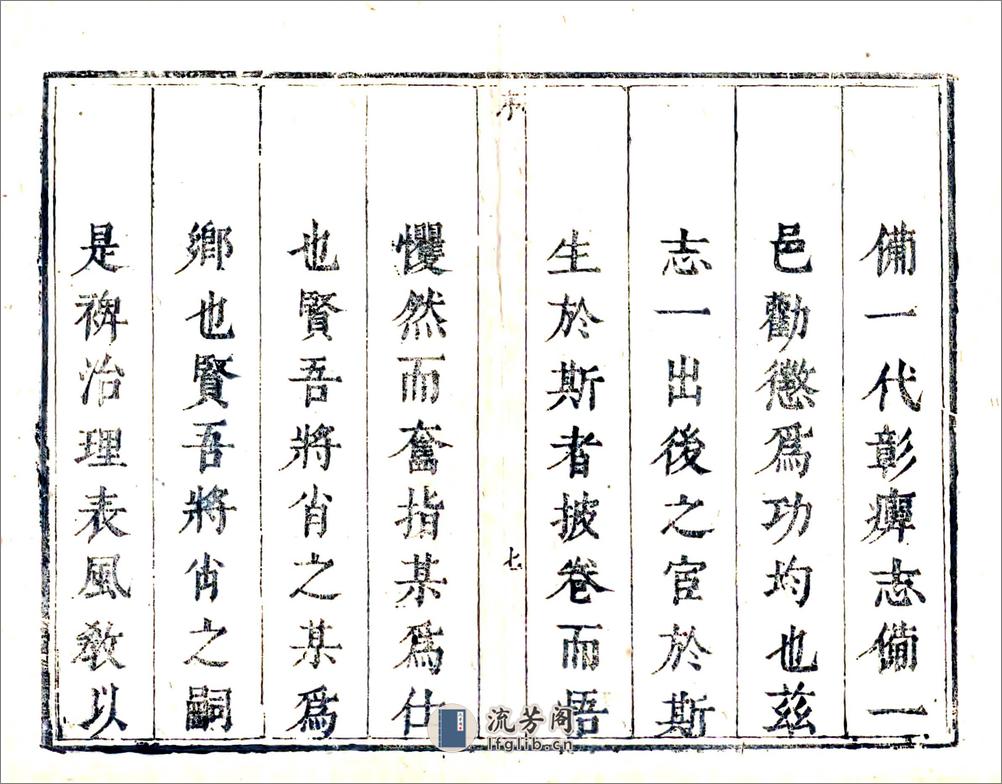 備一代彰癉志備一
邑勸懲爲功均也茲
志一出後之宦於斯
生於斯者披卷而悟
序
七
戄然而奮指某爲仕
也賢吾將肖之某爲
鄉也賢吾將肖之嗣
是裨治理表風教以
流芳阁
lfglib.cn